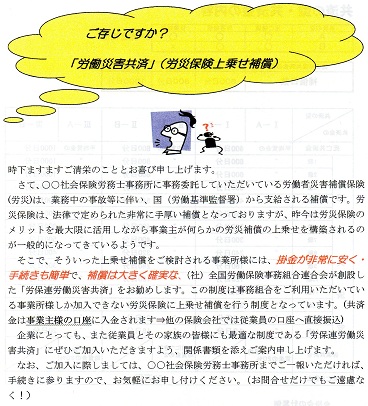 ご存じですか？
「労働災害共済」（労災保険上乗せ補償）
時下ますますご清栄のこととお喜び申し上げます。
さて、〇〇社会保険労務士事務所に事務委託していただいている労働者災害補償保険
（労災）は、業務中の事故等に伴い、国（労働基準監督署）から支給される補償です。労
災保険は、法律で定められた非常に手厚い補償となっておりますが、昨今は労災保険の
メリットを最大限に活用しながら事業主が何らかの労災補償の上乗せを構築されるの
が一般的になってきているようです。
そこで、そういった上乗せ補償をご検討される事業所様には、掛金が非常に安く・
手続きも簡単で、補償は大きく確実な、（社）全国労働保険事務組合連合会が創設し
た「労保連労働災害共済」をお勧めします。この制度は事務組合をご利用いただいてい
る事業所様しか加入できない労災保険に上乗せ補償を行う制度となっています。（共済
金は事業主様の口座に入金されます⇒他の保険会社では従業員の口座へ直接振込）
企業にとっても、また従業員とその家族の皆様にも最適な制度である「労保連労働災
害共済」にぜひご加入いただきますよう、関係書類を添えご案内申し上げます。
なお、ご加入に際しましては、〇〇社会保険労務士事務所までご一報いただければ、
手続きに参りますので、お気軽にお申し付けください。（お問合せだけでもご遠慮な
く！）